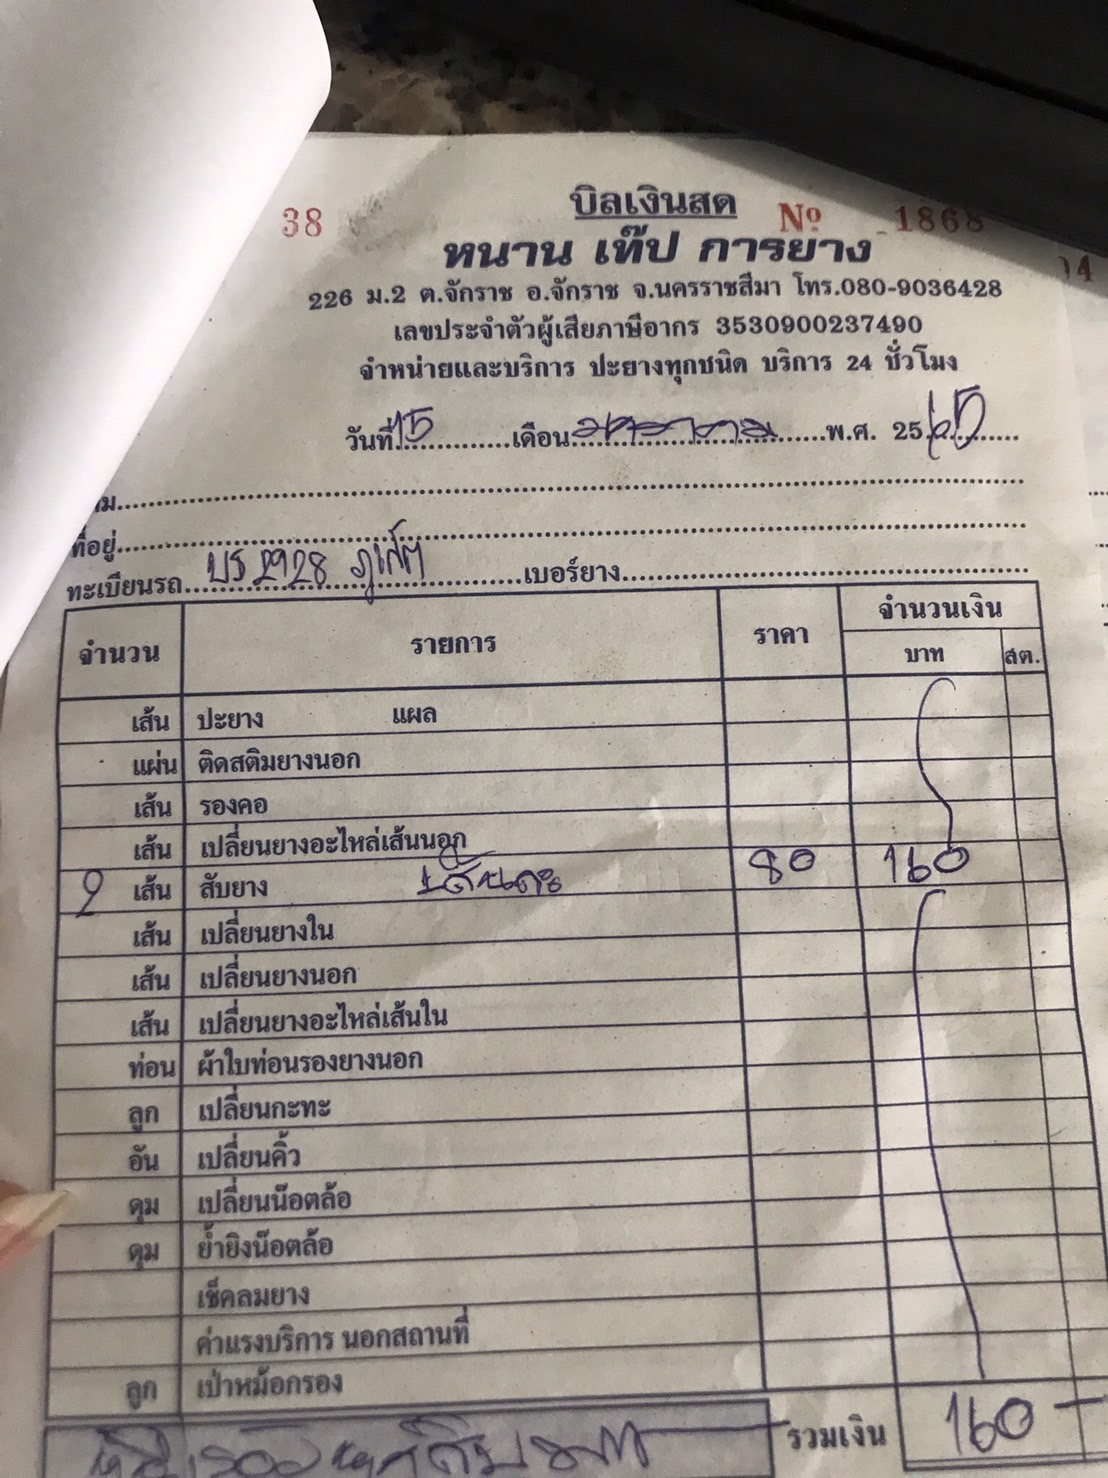 บิลเงินสด
38 № 1868
หนาน เท๊ป การยาง
226 ม.2 ต.จักราช อ.จักราช จ.นครราชสีมา โทร.080-9036428
เลขประจำตัวผู้เสียภาษีอากร 3530900237490
จำหน่ายและบริการ ปะยางทุกชนิด บริการ 24 ชั่วโมง
วันที่ 15 เดือน มกราคม พ.ศ. 2565
ที่อยู่
ทะเบียนรถ บร 2928 ภูเก็ต เบอร์ยาง
จำนวน รายการ ราคา จำนวนเงิน
บาท สต.
เส้น ปะยาง แผล
แผ่น ติดสติมยางนอก
เส้น รองคอ
เส้น เปลี่ยนยางอะไหล่เส้นนอก
2 เส้น สับยาง 80 160
เส้น เปลี่ยนยางใน
เส้น เปลี่ยนยางนอก
เส้น เปลี่ยนยางอะไหล่เส้นใน
ท่อน ผ้าใบท่อนรองยางนอก
ลูก เปลี่ยนกะทะ
อัน เปลี่ยนคิ้ว
ดุม เปลี่ยนน๊อตล้อ
ดุม ย้ำยิงน๊อตล้อ
เช็คลมยาง
ค่าแรงบริการ นอกสถานที่
ลูก เป่าหม้อกรอง
รวมเงิน 160 -